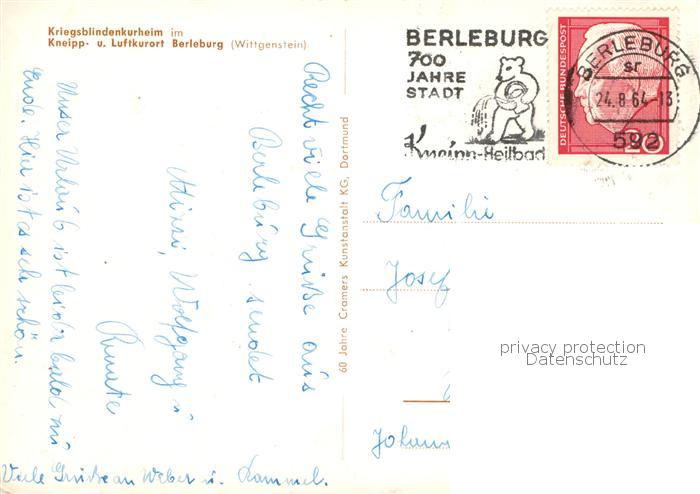 Kriegsblindenkurheim im
Kneipp- u. Luftkurort Berleburg (Wittgenstein)
Recht viele Grüße aus
Berleburg sendet
Wolfgang u
Renate
Unser Urlaub ist leider bald zu
Ende. Hier ist es sehr schön.
Viele Grüße an Weber u. Hammel.
60 Jahre Cramers Kunstanstalt KG, Dortmund
BERLEBURG
700
JAHRE
STADT
Kneipp-Heilbad
DEUTSCHE BUNDESPOST
20
BERLEBURG
sr
24.8.64-13
592
Familie
Josef
Johann
privacy protection
Datenschutz